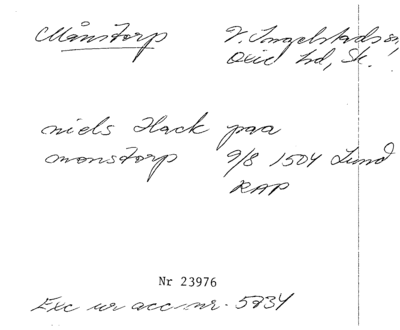 Månstorp V. Ingelstads sn,
Oxie hd, Sk.
niels Hack paa
monstorp 9/8 1504 Lund
RAP
Nr 23976
Exc ur acc.nr. 5734